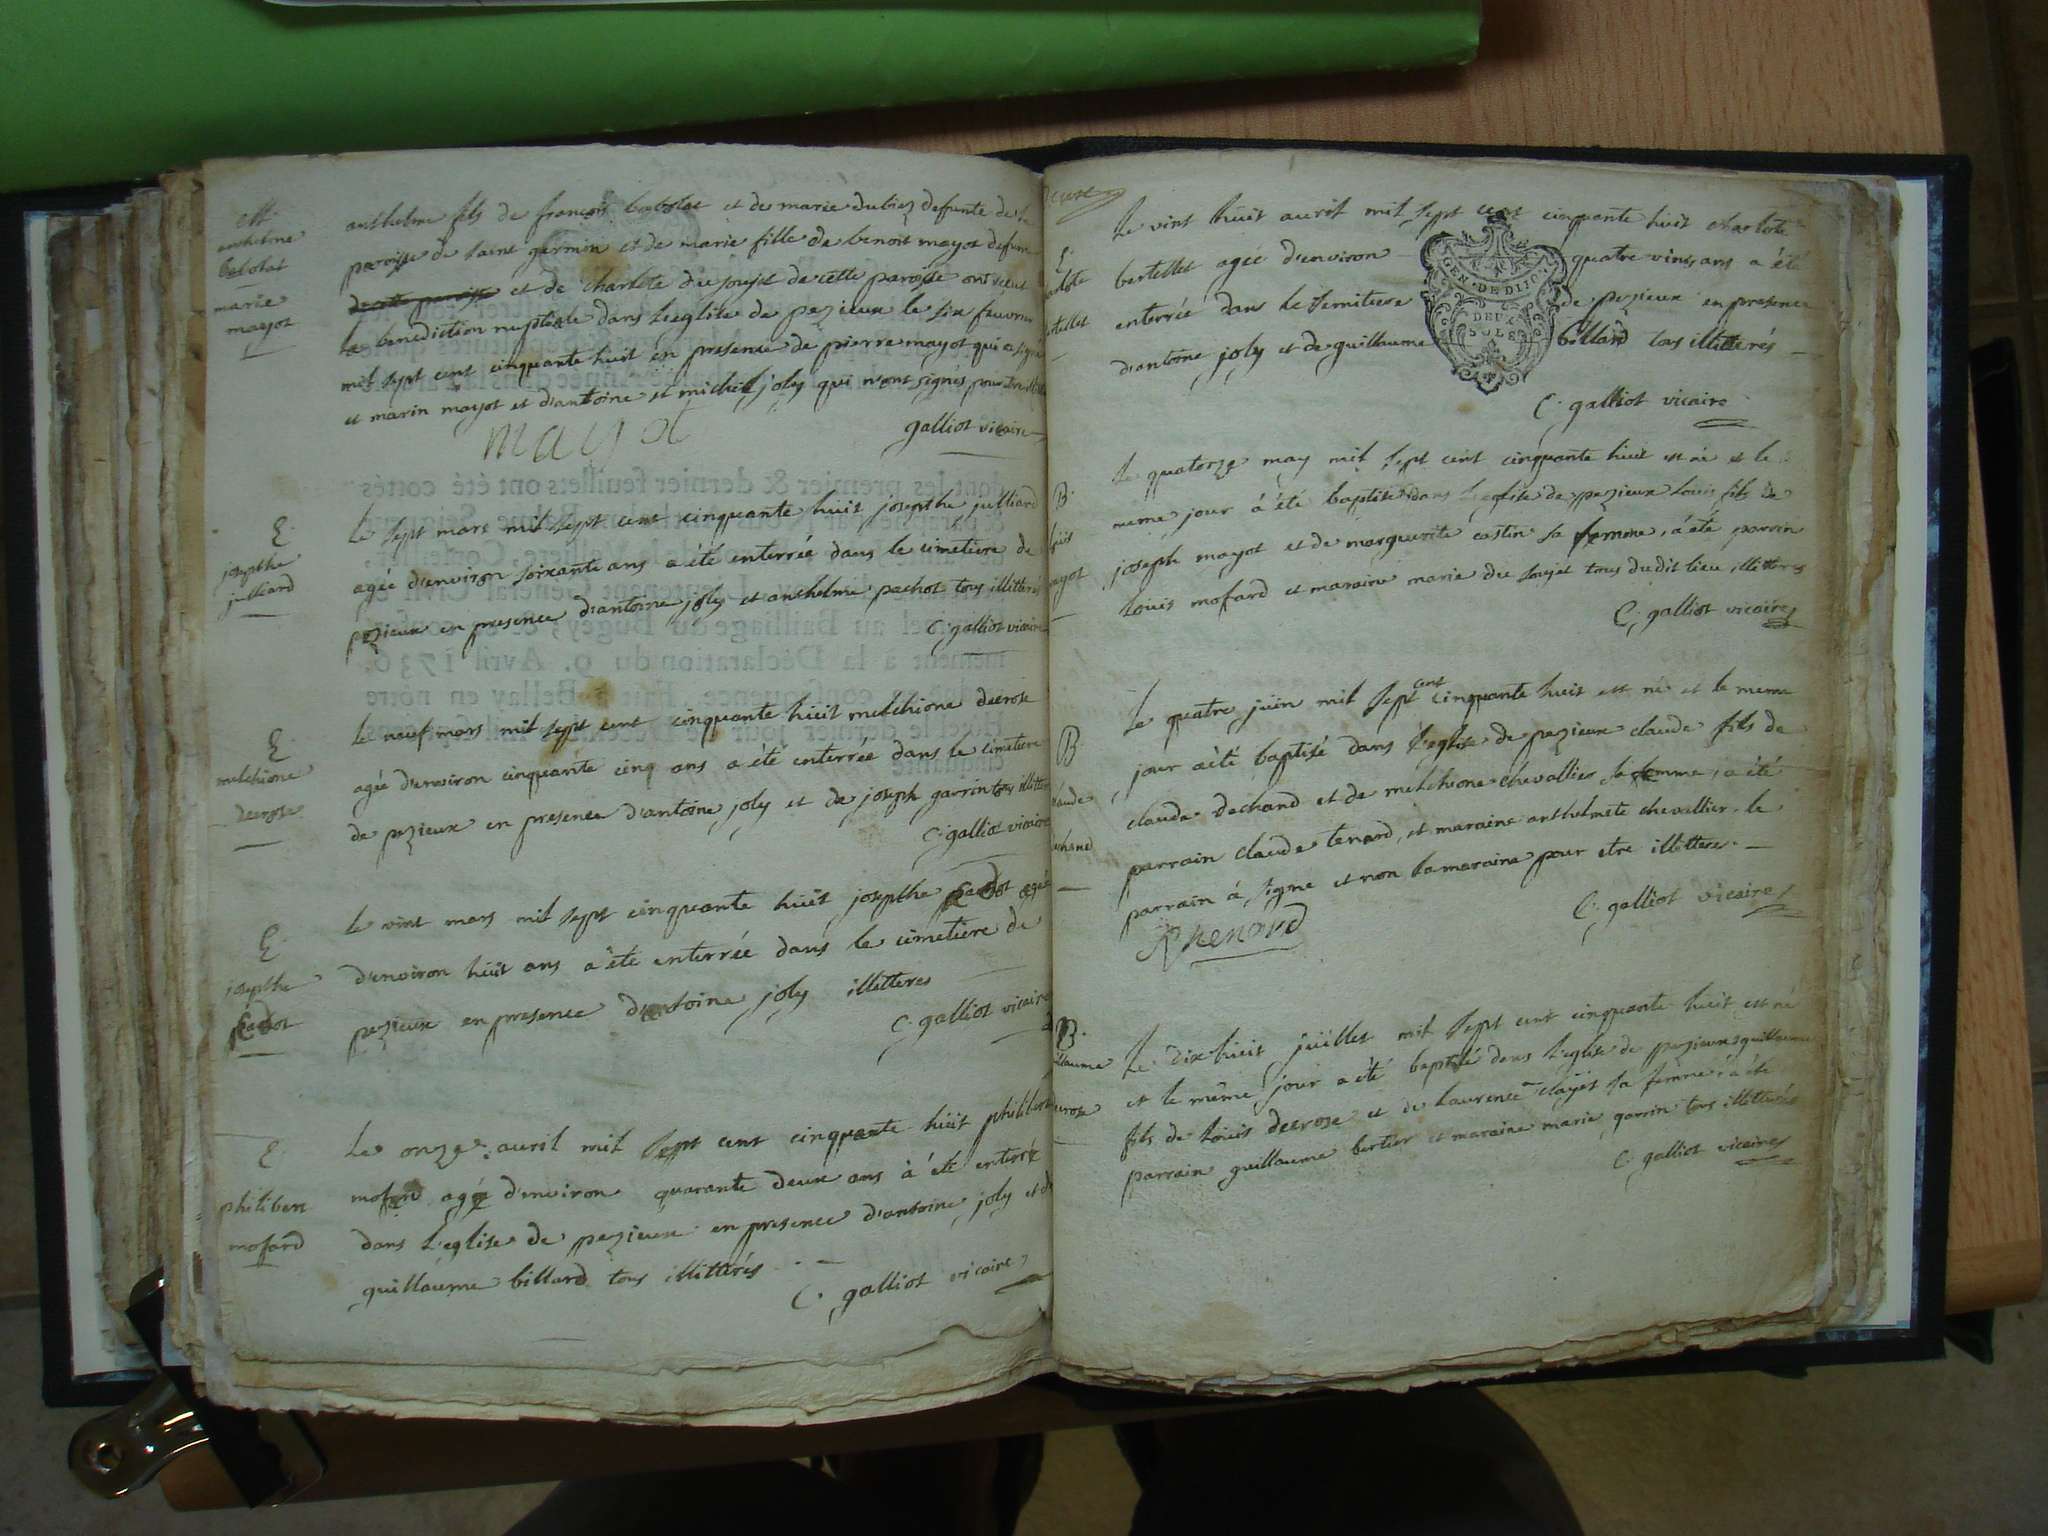 M
anthelme
bobolat
marie
mayot
anthelme fils de françois bobolat et de marie dubiez defunte de la
paroisse de saint germin et de marie fille de benoit mayot defunt
de cette paroisse et de charlote du soujet de cette paroisse ont reçeut
la benediction nuptiale dans l'eglise de pezieux le six feuvrier
mil sept cent cinquante huit en presence de pierre mayot qui a signé
et marin mayot et d'antoine et michel joly qui n'ont signés pour etre
mayot
galliot vicaire
E.
josepthe
julliard
le sept mars mil sept cent cinquante huit josepthe julliard
agée d'environ soixante ans a été enterrée dans le cimetiere de
pezieux en presence d'antoine joly et anthelme pachot tous illitterés
C. galliot vicaire
E.
melchione
decrose
le neuf mars mil sept cent cinquante huit melchione decrose
agée d'environ cinquante cinq ans a été enterrée dans le cimetiere
de pezieux en presence d'antoine joly et de joseph garrin tous illitter
C. galliot vicaire
E.
josepthe
le vint mars mil sept cinquante huit josepthe agée
d'environ huit ans a été enterrée dans le cimetiere de
pezieux en presence d'antoine joly illitteres
C. galliot vicaire
E.
philibert
mofard
Le onze avril mil sept cent cinquante huit philibert
mofard agé d'environ quarante deux ans à été enterré
dans l'eglise de pezieux en presence d'antoine joly et de
guillaume billard tous illitterés
C. galliot vicaire
E.
arlote
ertellet
Le vint huit avril mil sept cent cinquante huit charlote
bertellet agée d'environ quatre vints ans a été
enterrée dans le semitiere de pezieux en presence
d'antoine joly et de guillaume billard tous illitterés
GEN. DE DIJON
DEUX
SOLS
C. galliot vicaire
B.
louis
mayot
Le quatorze may mil sept cent cinquante huit est né et le
meme jour à été baptisé dans l'eglise de pezieux louis fils de
joseph mayot et de marguerite costin sa femme, à été parrin
louis mofard et maraine marie du soujet tous dudit lieu illitterés
C. galliot vicaire
B.
claude
dechand
Le quatre juin mil sept cent cinquante huit est né et le meme
jour a été baptisé dans l'eglise de pezieux claude fils de
claude dechand et de melchione chevallier sa femme, a été
parrain claude tenard, et maraine anthelmete chevallier le
parrain à signe et non la maraine pour etre illettere.
C. galliot vicaire
B.
illaume
ecrose
Le dix huit juillet mil sept cent cinquante huit est né
et le même jour a été baptisé dans l'eglise de pezieux guillaume
fils de louis decrose et de laurence clayet sa femme, à été
parrain guillaume bertier et maraine marie garrin tous illitterés
C. galliot vicaire